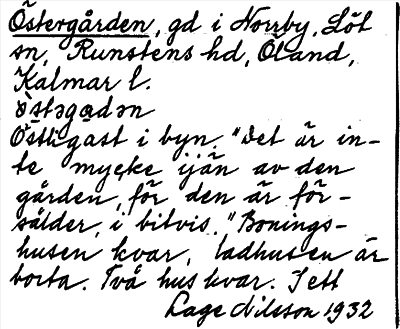 Östergården, gd i Norrby, Löt
sn, Runstens hd, Öland,
Kalmar l.
östəgɑdən
Östligast i byn. "Det är in-
te mycke ijän av den
gården, för den är för-
sålder, i bitvis." Bonings-
husen kvar, ladhusen är
borta. Två hus kvar. I ett
Lage Nilsson 1932